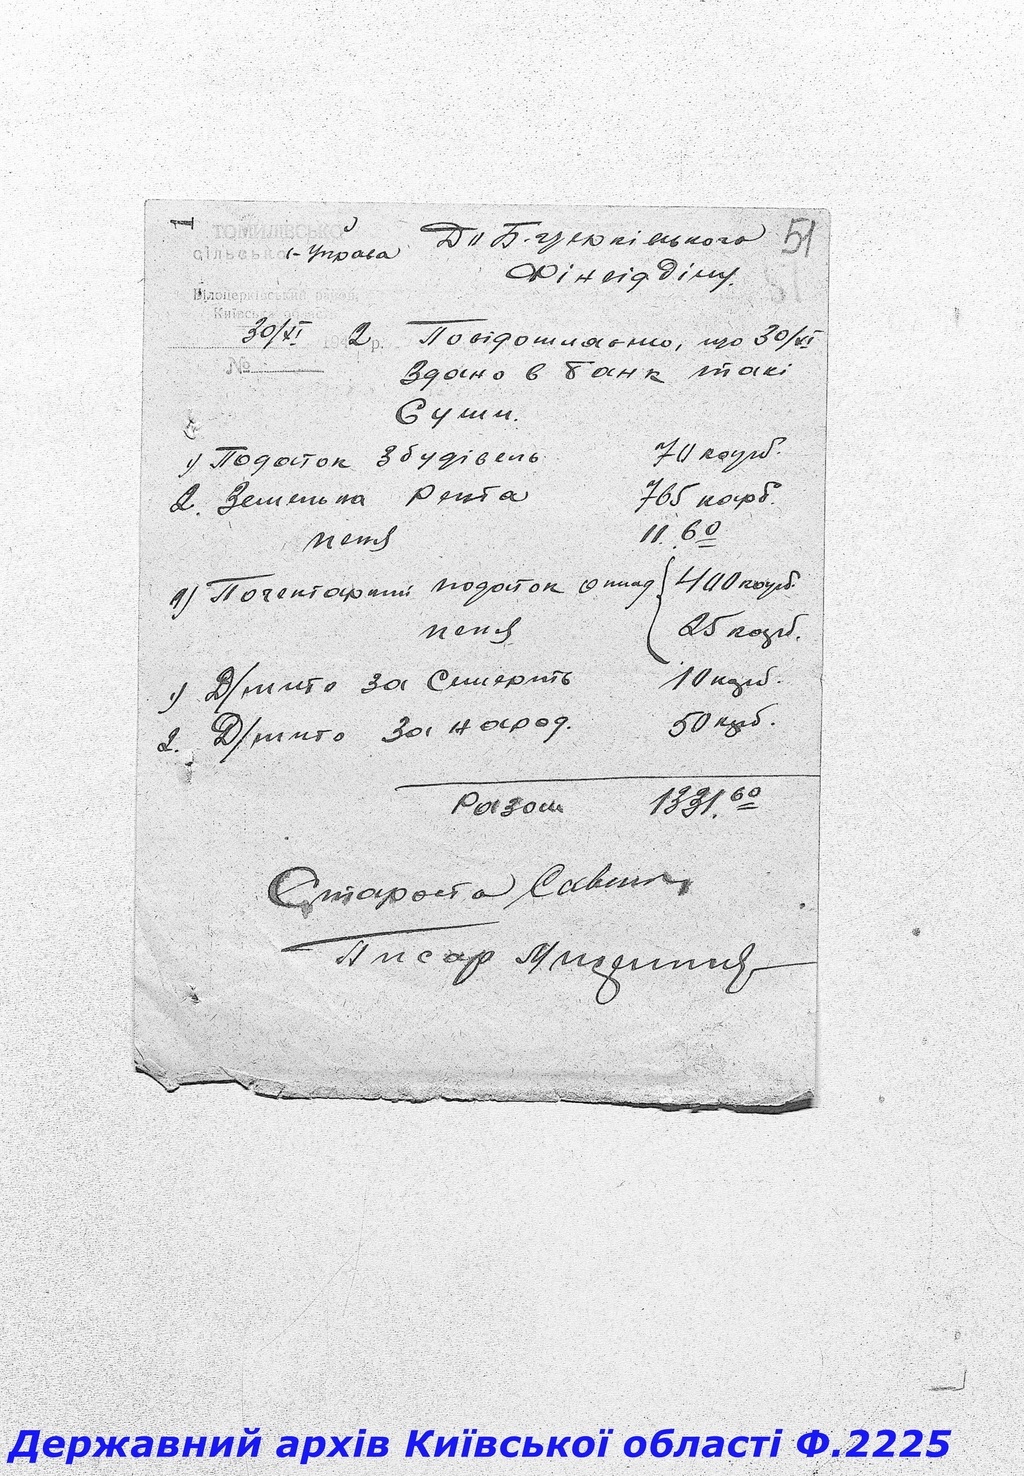 1
51
ТОМИЛІВСЬКО
сільсько - Управа
До Б-церківського
Фінвідділу.
Білоцерківський район,
Київська область
30/XI 2 194 р.
№
Повідомляємо, що 30/XI
Здано в банк такі
Суми.
1) Податок Збудівель 70 карб.
2. Земельна Рента 765 карб.
пеня 11.60
податок 400 карб.
пеня 25 карб.
1) Д/мито За Смерть 10 карб.
2. Д/мито За народ. 50 карб.
Разом 1331.60
Староста
Писар
Державний архів Київської області Ф.2225